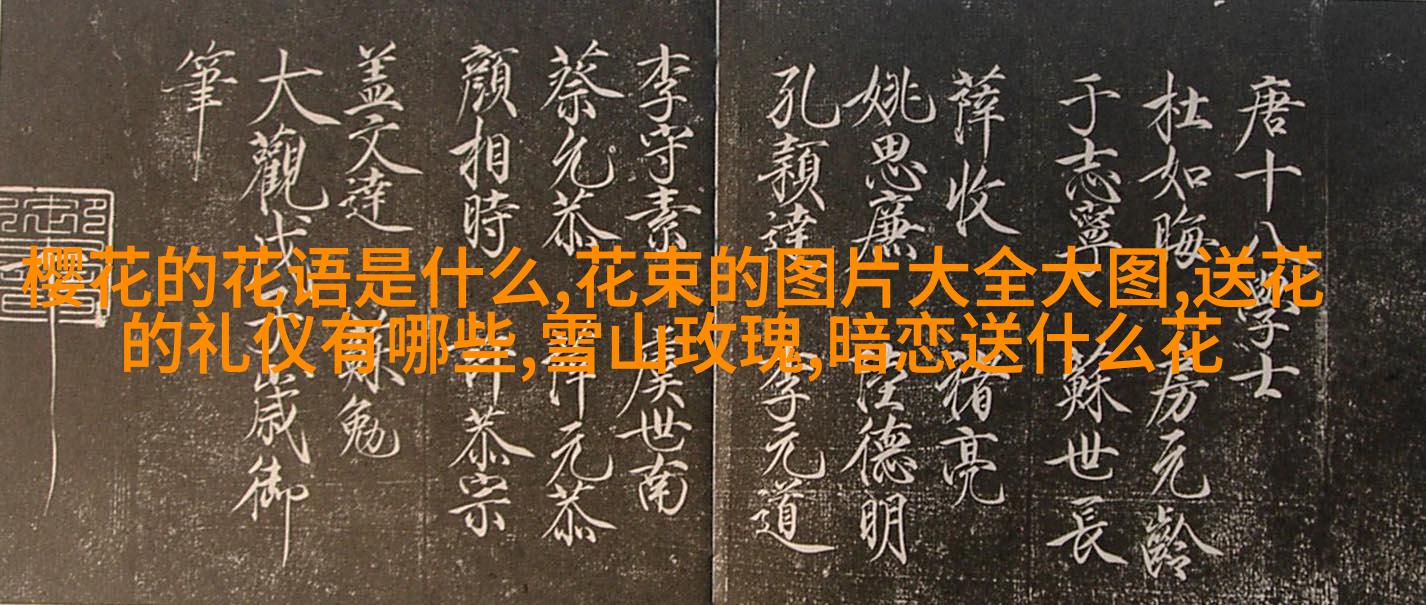 樱花的花语是什么,花束的图片大全大图,送花
的礼仪有哪些,雪山玫瑰,暗恋送什么花
唐十八學士
杜如晦 房元齡
于志寧 蘇世長
薛收 褚亮
姚思廉 陸德明
孔穎達 李元道
李守素 虞世南
蔡元恭 薛元恭
顏相時 許恭宗
盖文達 蘇勉
大觀戊 歲御
筆